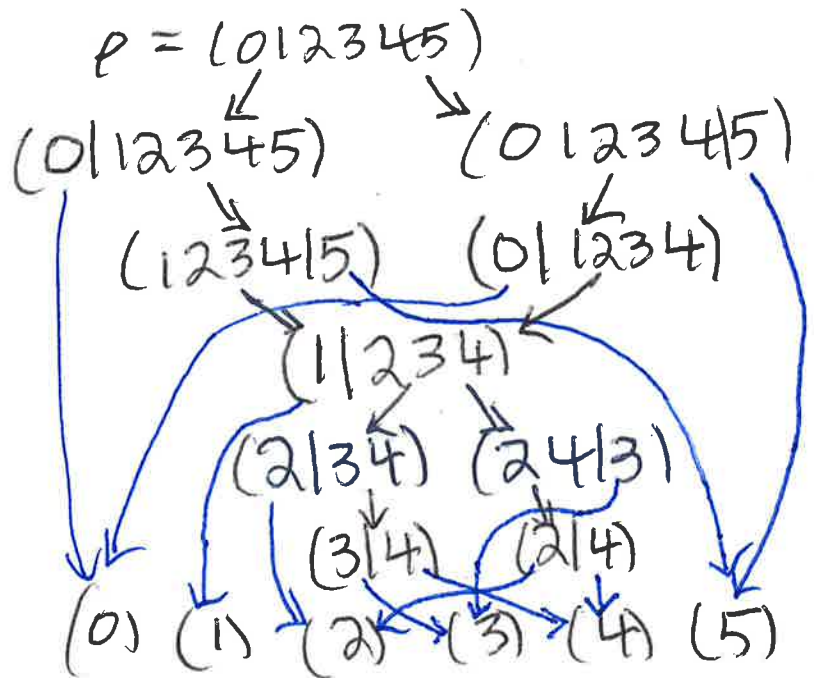 ρ = (012345)
(0|12345) (01234|5)
(1234|5) (0|1234)
(1|234)
(2|34) (24|3)
(3|4) (2|4)
(0) (1) (2) (3) (4) (5)